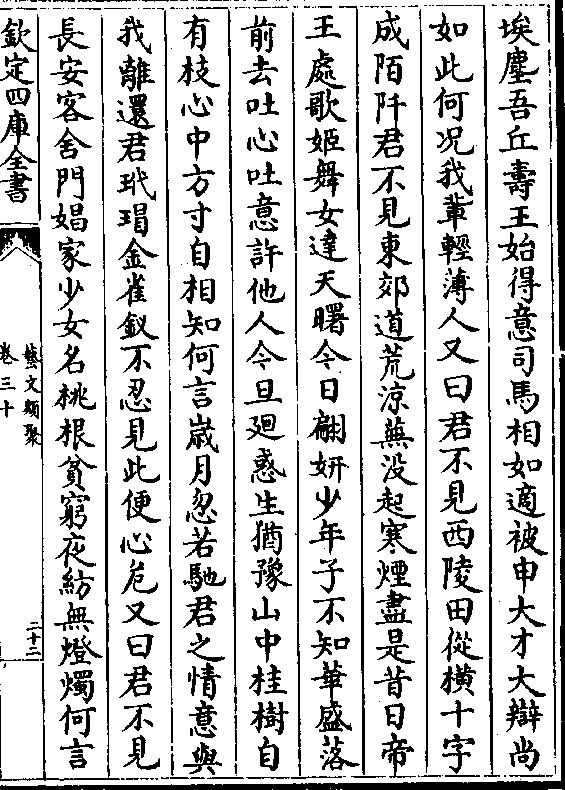 埃塵吾丘壽王始得意司馬相如適被申大才大辯尚
如此何况我輩輕薄人又曰君不見西陵田從橫十字
成陌阡君不見東郊道荒涼蕪没起寒煙盡是昔日帝
王處歌姬舞女達天曙今日翩妍少年子不知華盛落
前去吐心吐意許他人今旦廻惑生猶豫山中桂樹自
有枝心中方寸自相知何言嵗月忽若馳君之情意與
我離還君玳瑁金雀釵不忍見此便心危又曰君不見
長安客舍門娼家少女名桃根貧窮夜紡無燈燭何言
欽定四庫全書
藝文類聚
卷三十
二十二